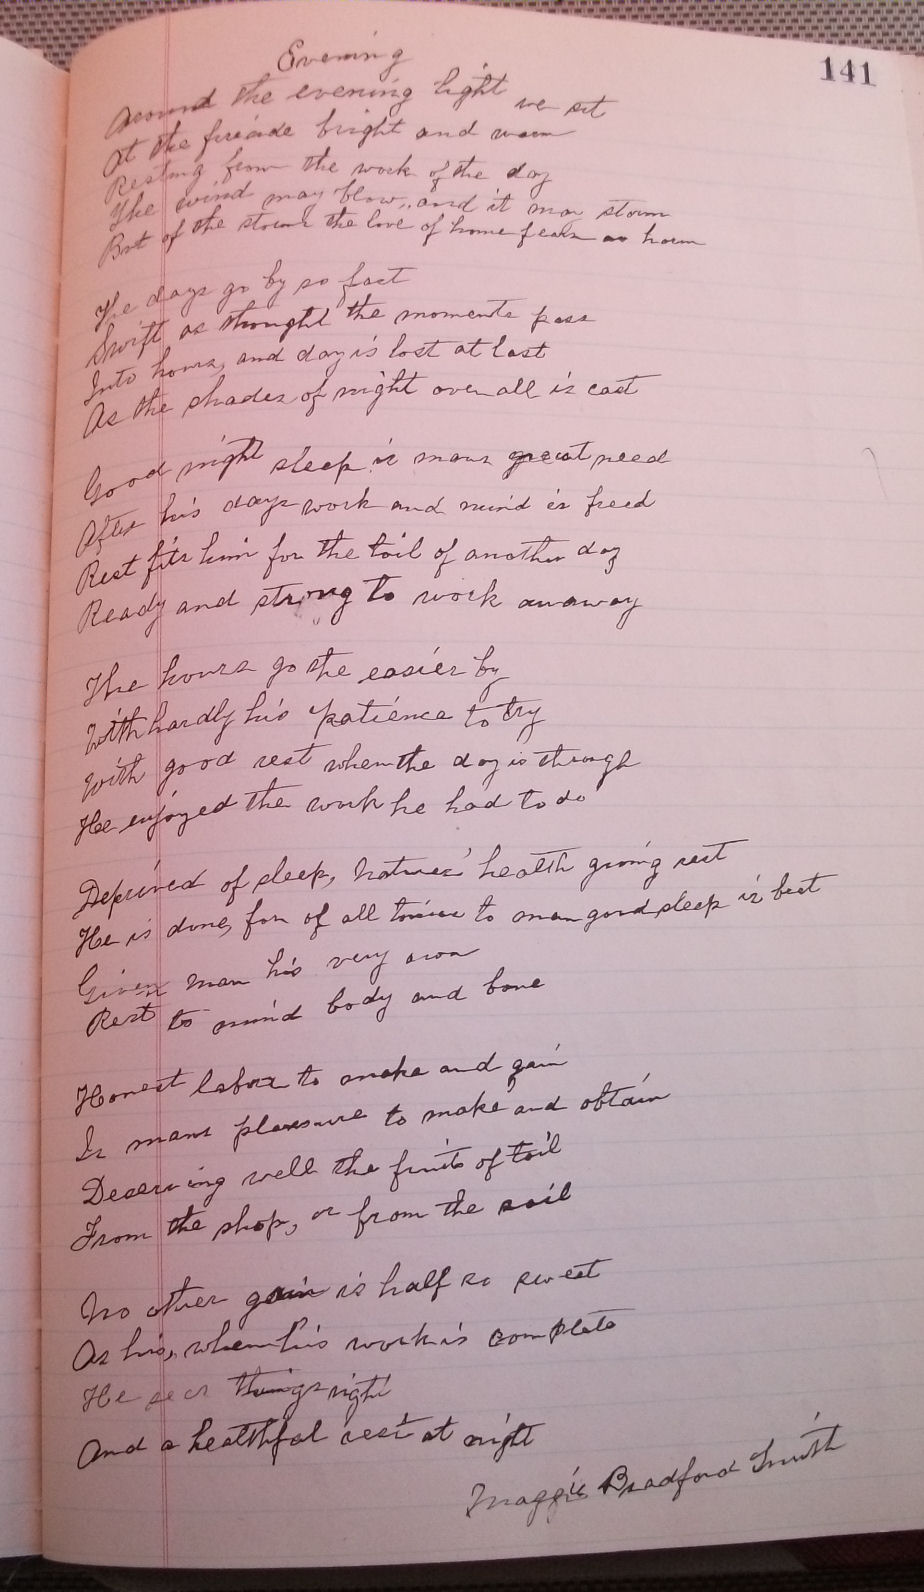 141
Evening
Around the evening light we sit
At the fireside bright and warm
Resting from the work of the day
The wind may blow, and it may storm
But of the storm the love of home fears no harm
The days go by so fast
Swift as thought the moments pass
Into hours, and day is lost at last
As the shades of night over all is cast
Good night sleep is mans great need
After his days work and mind is freed
Rest fits him for the toil of another day
Ready and strong to work away
The hours go the easier by
With hardly his patience to try
With good rest when the day is through
He enjoyed the work he had to do
Deprived of sleep, natures' health giving rest
He is done, for of all to man good sleep is best
Given man his very own
Rest to mind body and bone
Honest labor to make and gain
Is mans pleasure to make and obtain
Deserving well the fruits of toil
From the shop, or from the soil
No other gain is half so sweet
As his, when his work is complete
He sees things right
And a healthful rest at night
Maggie Bradford Smith